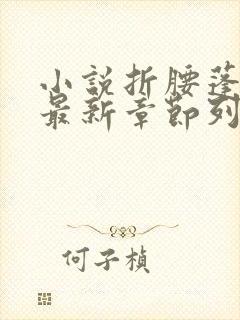 小説折腰蓬
最新章節列
何子楨